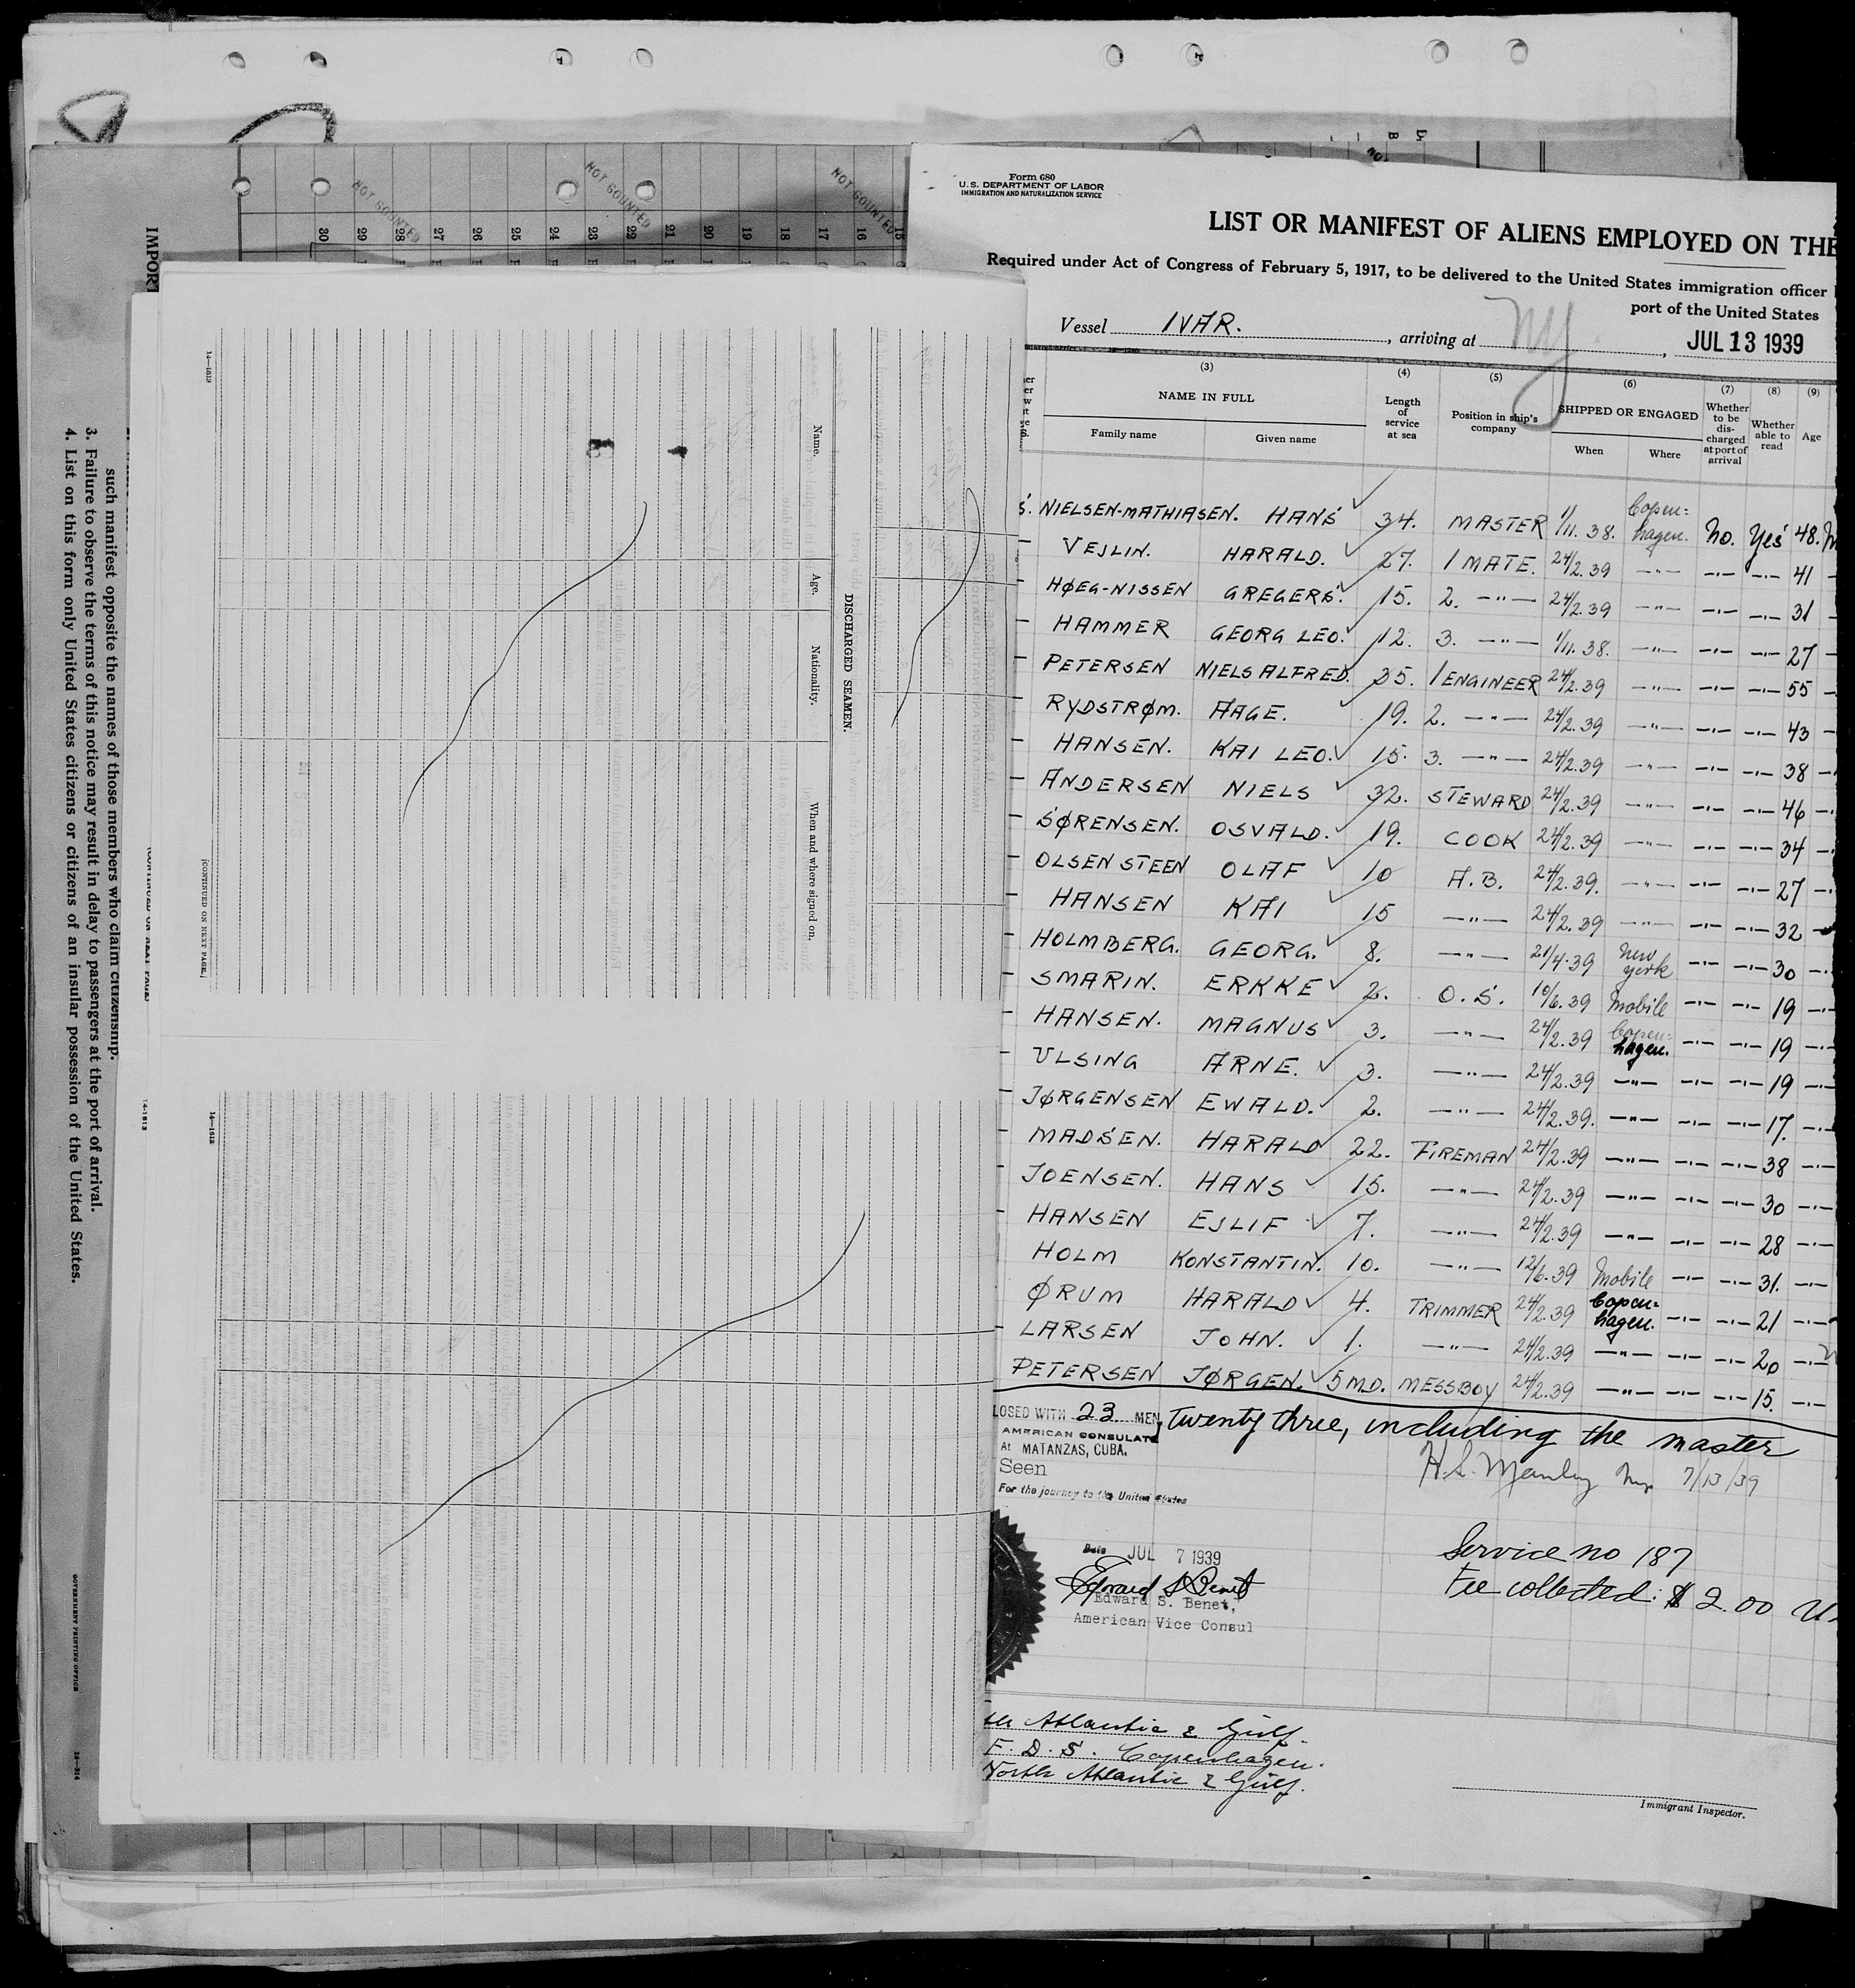 Form 680
U.S. DEPARTMENT OF LABOR
IMMIGRATION AND NATURALIZATION SERVICE
LIST OR MANIFEST OF ALIENS EMPLOYED ON THE
Required under Act of Congress of February 5, 1917, to be delivered to the United States immigration officer
port of the United States
Vessel IVAR. , arriving at NY , JUL 13 1939
(3) (4) (5) (6) (7) (8) (9)
NAME IN FULL
Family name Given name
Length of service at sea
Position in ship's company
SHIPPED OR ENGAGED
When Where
Whether to be discharged at port of arrival
Whether able to read
Age
NIELSEN-MATHIASEN. HANS 34. MASTER 1/11. 38. Copen=hagen. No. Yes 48.
VEJLIN. HARALD. 27. 1 MATE. 24/2.39 —"— —"— —"— 41
HØEG-NISSEN GREGERS. 15. 2. —"— 24/2.39 —"— —"— —"— 31
HAMMER GEORG LEO. 12. 3. —"— 1/11. 38. —"— —"— —"— 27
PETERSEN NIELS ALFRED. 35. 1 ENGINEER 24/2.39 —"— —"— —"— 55
RYDSTRØM. AAGE. 19. 2. —"— 24/2.39 —"— —"— —"— 43
HANSEN. KAI LEO. 15. 3. —"— 24/2.39 —"— —"— —"— 38
ANDERSEN NIELS 32. STEWARD 24/2.39 —"— —"— —"— 46
SØRENSEN. OSVALD. 19. COOK 24/2.39 —"— —"— —"— 34
OLSEN STEEN OLAF 10 A.B. 24/2.39. —"— —"— —"— 27
HANSEN KAI 15 —"— 24/2.39 —"— —"— —"— 32
HOLMBERG. GEORG. 8. —"— 21/4.39 New York —"— —"— 30
SMARIN. ERKKE 2. O.S. 10/6.39 Mobile —"— —"— 19
HANSEN. MAGNUS 3. —"— 24/2.39 Copen=hagen. —"— —"— 19
ULSING ARNE. 3. —"— 24/2.39 —"— —"— —"— 19
JØRGENSEN EWALD. 2. —"— 24/2.39. —"— —"— —"— 17.
MADSEN. HARALD 22. FIREMAN 24/2.39 —"— —"— —"— 38
JOENSEN. HANS 15. —"— 24/2.39 —"— —"— —"— 30
HANSEN EJLIF 7. —"— 24/2.39 —"— —"— —"— 28
HOLM KONSTANTIN. 10. —"— 12/6.39 Mobile —"— —"— 31.
ØRUM HARALD 4. TRIMMER 24/2.39 Copen=hagen. —"— —"— 21
LARSEN JOHN. 1. —"— 24/2.39 —"— —"— —"— 20
PETERSEN JØRGEN. 5 MD. MESSBOY 24/2.39 —"— —"— —"— 15.
LOSED WITH 23 MEN, twenty three, including the master
AMERICAN CONSULATE
At MATANZAS, CUBA.
Seen
For the journey to the United States
H.S. Manley 7/13/39
Date JUL 7 1939
Edward S. Benet
Edward S. Benet,
American Vice Consul
Service no 187
Fee collected: $ 2.00
th Atlantic & Gulf.
F. D. S. Copenhagen.
North Atlantic & Gulf.
Immigrant Inspector.
NOT COUNTED
NOT COUNTED
NOT COUNTED
30 29 28 27 26 25 24 23 22 21 20 19 18 17 16 15
DISCHARGED SEAMEN.
Name. Age. Nationality. When and where signed on.
[CONTINUED ON NEXT PAGE.]
14—1613
14—1613
IMPORT
such manifest opposite the names of those members who claim citizenship.
3. Failure to observe the terms of this notice may result in delay to passengers at the port of arrival.
4. List on this form only United States citizens or citizens of an insular possession of the United States.
GOVERNMENT PRINTING OFFICE
14—314